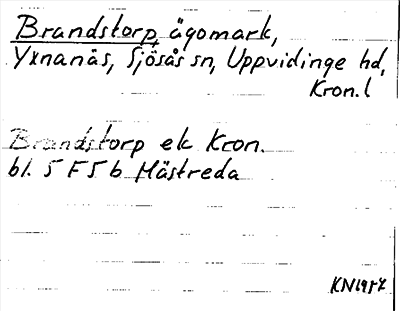 Brandstorp, ägomark,
Yxnanäs, Sjösås sn, Uppvidinge hd,
Kron. l
Brandstorp ek Kron.
bl. 5 F 5 b Hästreda
KN1957